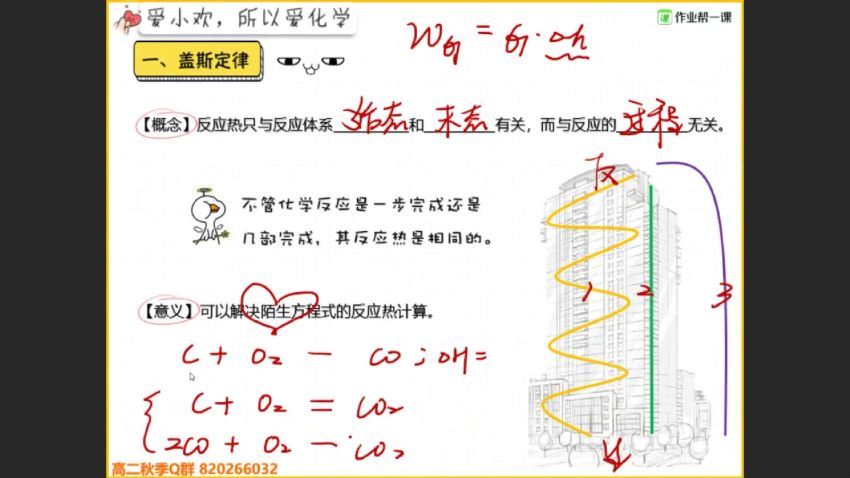 爱小欢，所以爱化学
作业帮一课
W重 = G·Δh
一、盖斯定律
【概念】反应热只与反应体系始态和末态有关，而与反应的过程无关。
反
不管化学反应是一步完成还是
几部完成，其反应热是相同的。
1 2 3
【意义】可以解决陌生方程式的反应热计算。
C + O₂ — CO ; ΔH =
C + O₂ = CO₂
2CO + O₂ — CO₂
高二秋季Q群 820266032